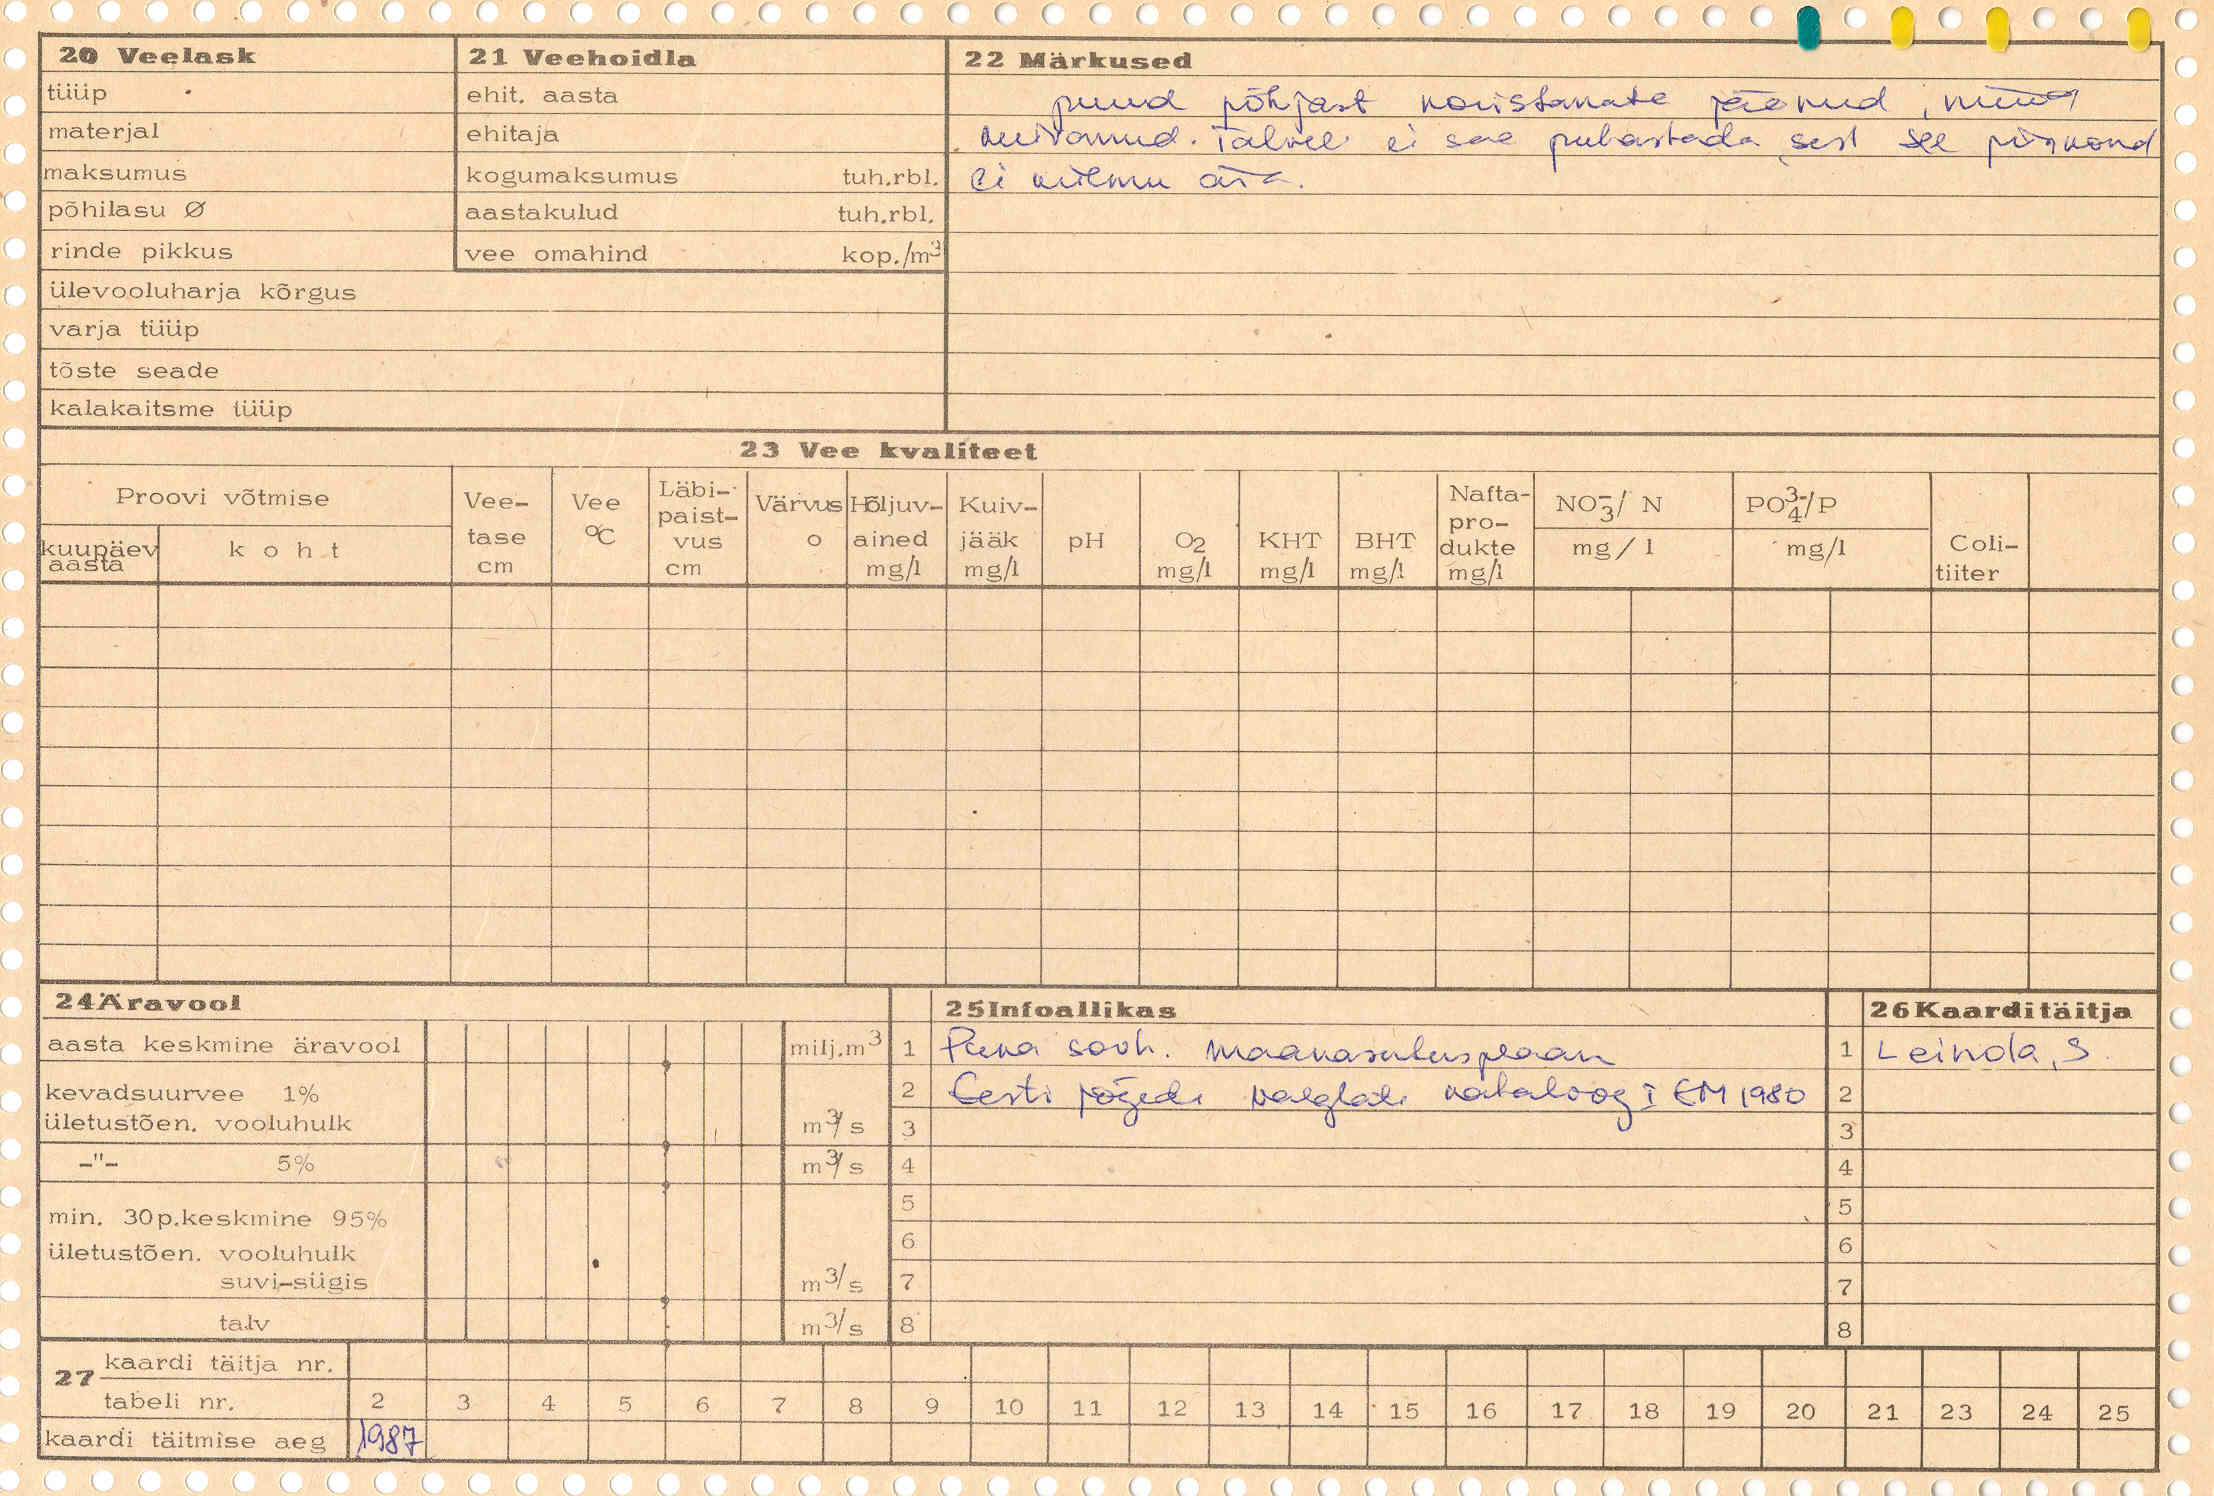 20 Veelask
tüüp
materjal
maksumus
põhilasu Ø
rinde pikkus
ülevooluharja kõrgus
varja tüüp
tõste seade
kalakaitsme tüüp
21 Veehoidla
ehit. aasta
ehitaja
kogumaksumus tuh.rbl.
aastakulud tuh.rbl.
vee omahind kop./m³
22 Märkused
puud põhjast koristamata jäänud,
Talvel ei saa puhastada, sest see piirkond
ei külmu ära.
23 Vee kvaliteet
Proovi võtmise
kuupäev aasta
koht
Vee-
tase
cm
Vee
°C
Läbi-
paist-
vus
cm
Värvus
o
Hõljuv-
ained
mg/l
Kuiv-
jääk
mg/l
pH
O2
mg/l
KHT
mg/l
BHT
mg/l
Nafta-
pro-
dukte
mg/l
NO3-/ N
mg/l
PO43-/P
mg/l
Coli-
tiiter
24 Äravool
aasta keskmine äravool milj.m³
kevadsuurvee 1%
ületustõen. vooluhulk m³/s
-"- 5% m³/s
min. 30p.keskmine 95%
ületustõen. vooluhulk
suvi-sügis m³/s
talv m³/s
25 Infoallikas
1 Puna sovh. maakasutusplaan
2 Eesti jõgede valglate kataloog I EM 1980
3
4
5
6
7
8
26 Kaarditäitja
1 Leinola, S.
2
3
4
5
6
7
8
27 kaardi täitja nr.
tabeli nr. 2 3 4 5 6 7 8 9 10 11 12 13 14 15 16 17 18 19 20 21 23 24 25
kaardi täitmise aeg 1987